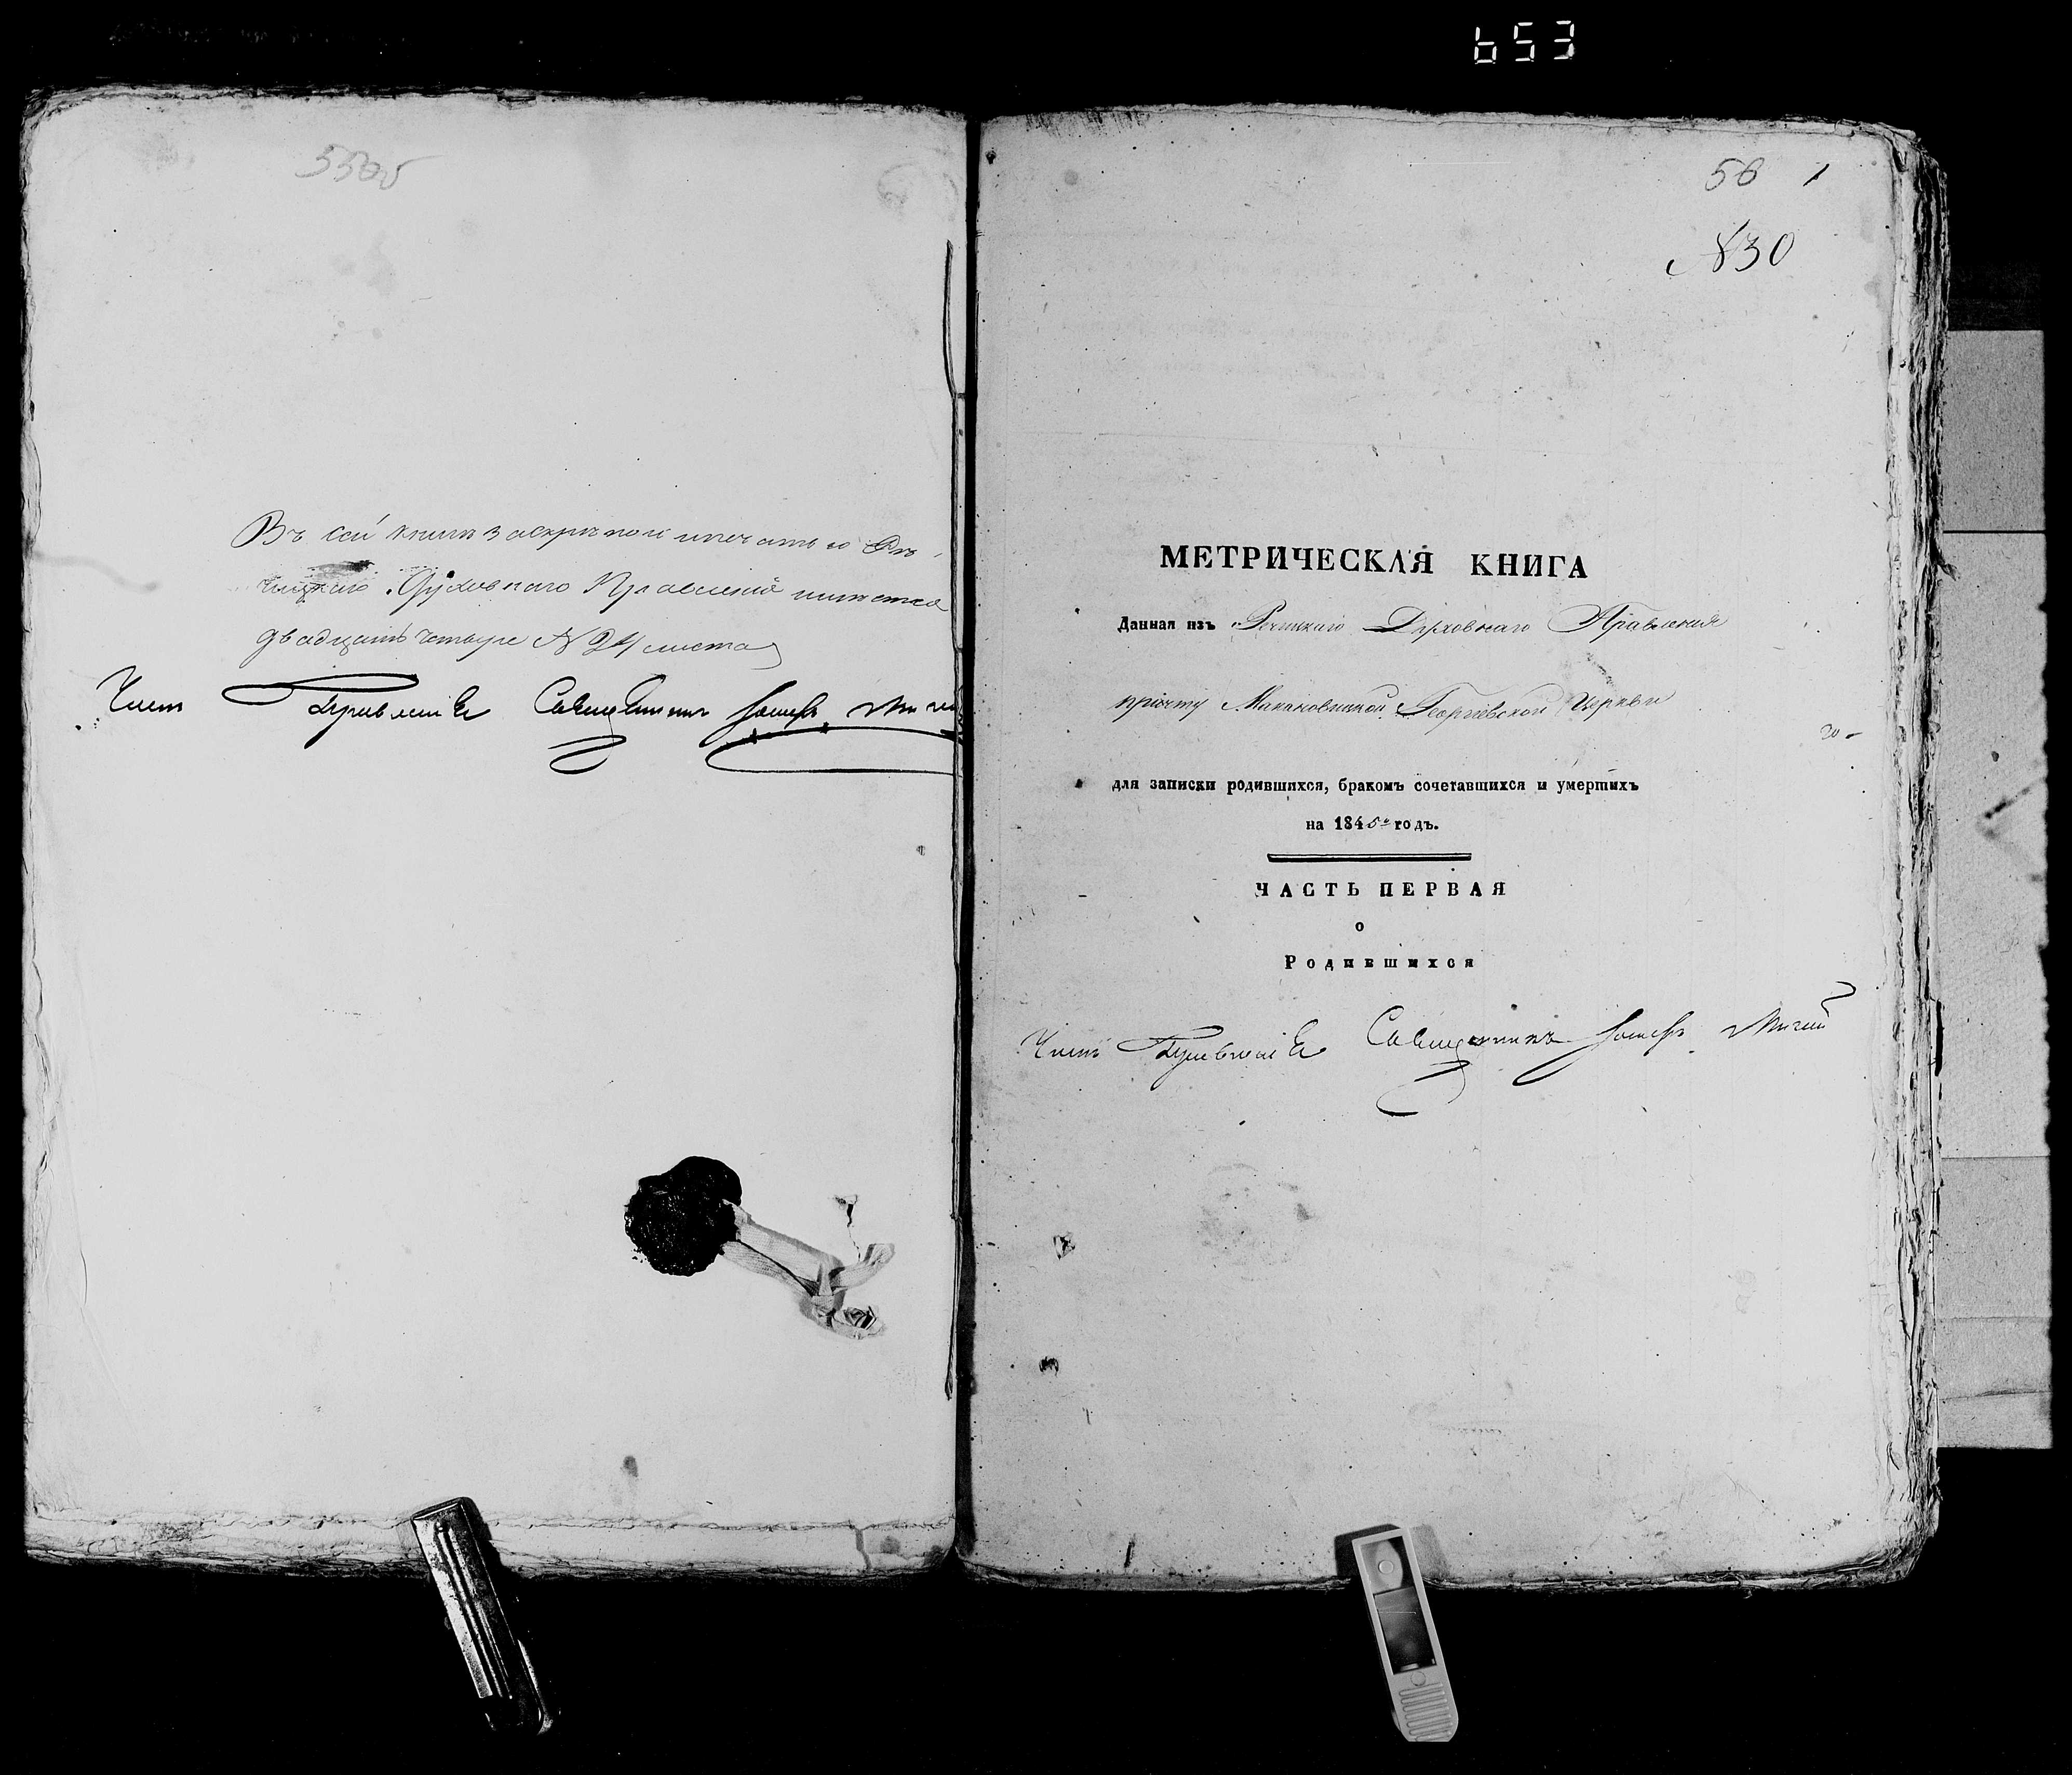 653
55об
Въ сей книги за скрепой и печатью Рѣ-
чицкаго Духовнаго Правленія
двадцать четыре № 24 листа
Членъ Правленія Священникъ Іосифъ
56 1
№30
МЕТРИЧЕСКАЯ КНИГА
Данная изъ Речицкаго Духовнаго Правления
причту Макановицкой Георгіевской Церкви
для записки родившихся, бракомъ сочетавшихся и умершихъ
на 1845й годъ.
ЧАСТЬ ПЕРВАЯ
о
Родившихся
Членъ Правленія Священникъ Іосифъ